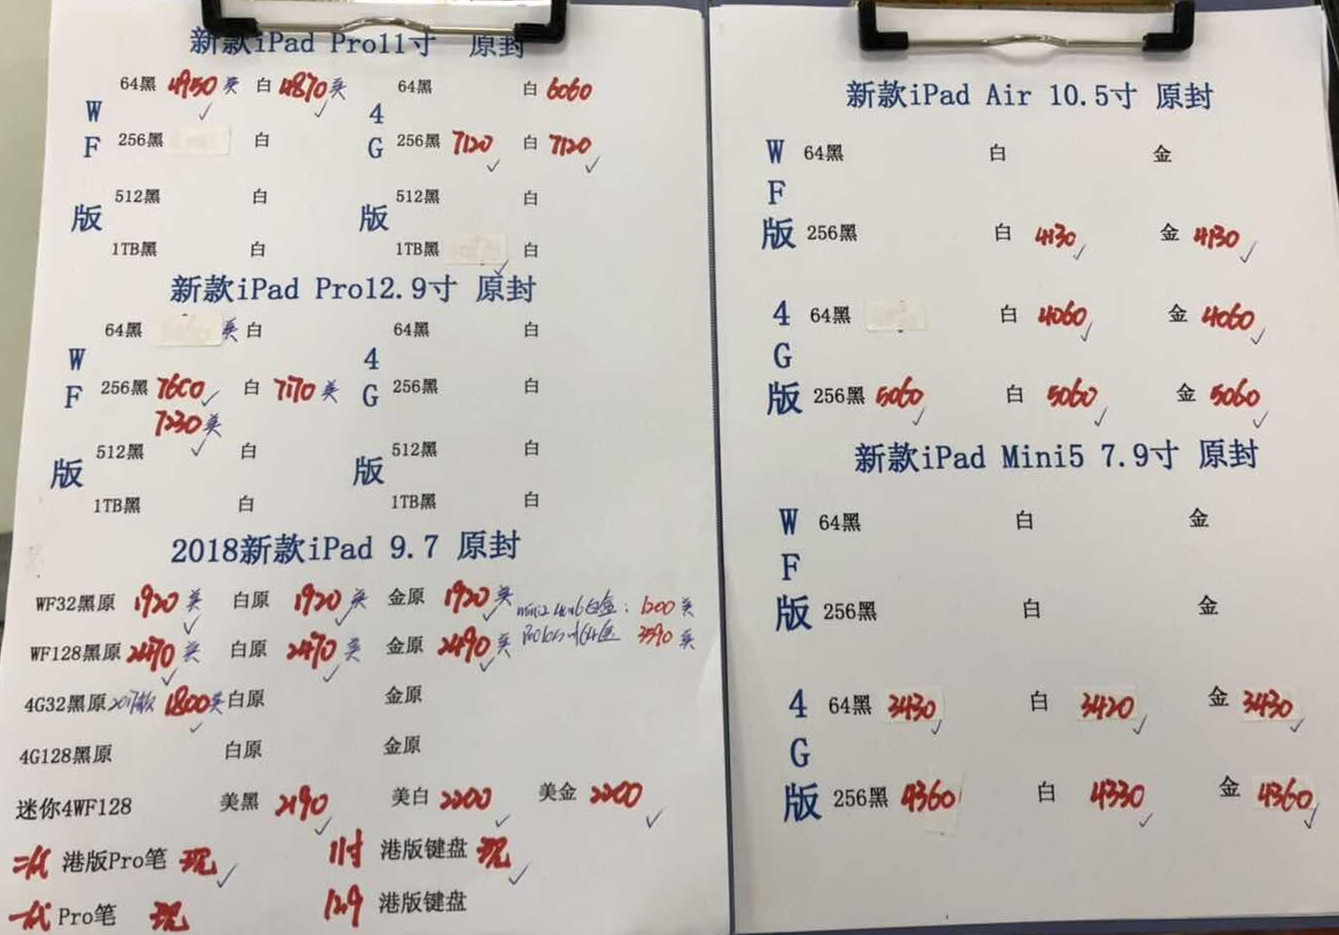 新款iPad Pro11寸 原封
64黑 4950 美 白 4870 美 64黑 白 6060
WF版 4G版
256黑 白 256黑 7120 白 7120
512黑 白 512黑 白
1TB黑 白 1TB黑 白
新款iPad Pro12.9寸 原封
64黑 美 白 64黑 白
WF版 4G版
256黑 7600 白 7170 美 256黑 白
7230 美
512黑 白 512黑 白
1TB黑 白 1TB黑 白
2018新款iPad 9.7 原封
WF32黑原 1920 美 白原 1920 美 金原 1920 美
mini2 白金: 1200 美
WF128黑原 2470 美 白原 2470 美 金原 2490 美
金 3590 美
4G32黑原 2017款 1800 美 白原 金原
4G128黑原 白原 金原
迷你4WF128 美黑 2190 美白 2200 美金 2200
二代 港版Pro笔 现 11寸 港版键盘 现
一代 Pro笔 现 12.9 港版键盘
新款iPad Air 10.5寸 原封
WF版
64黑 白 金
256黑 白 4130 金 4130
4G版
64黑 白 4060 金 4060
256黑 5060 白 5060 金 5060
新款iPad Mini5 7.9寸 原封
WF版
64黑 白 金
256黑 白 金
4G版
64黑 3430 白 3420 金 3430
256黑 4360 白 4330 金 4360